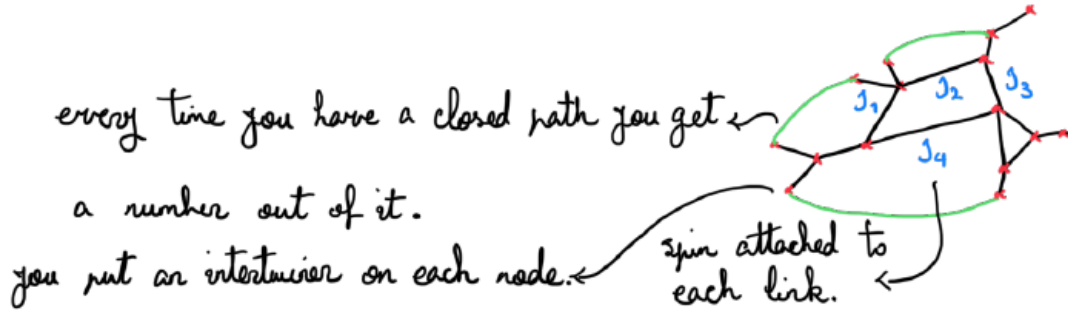 every time you have a closed path you get
a number out of it.
you put an intertwiner on each node.
spin attached to
each link.
J₁ J₂ J₃
J₄